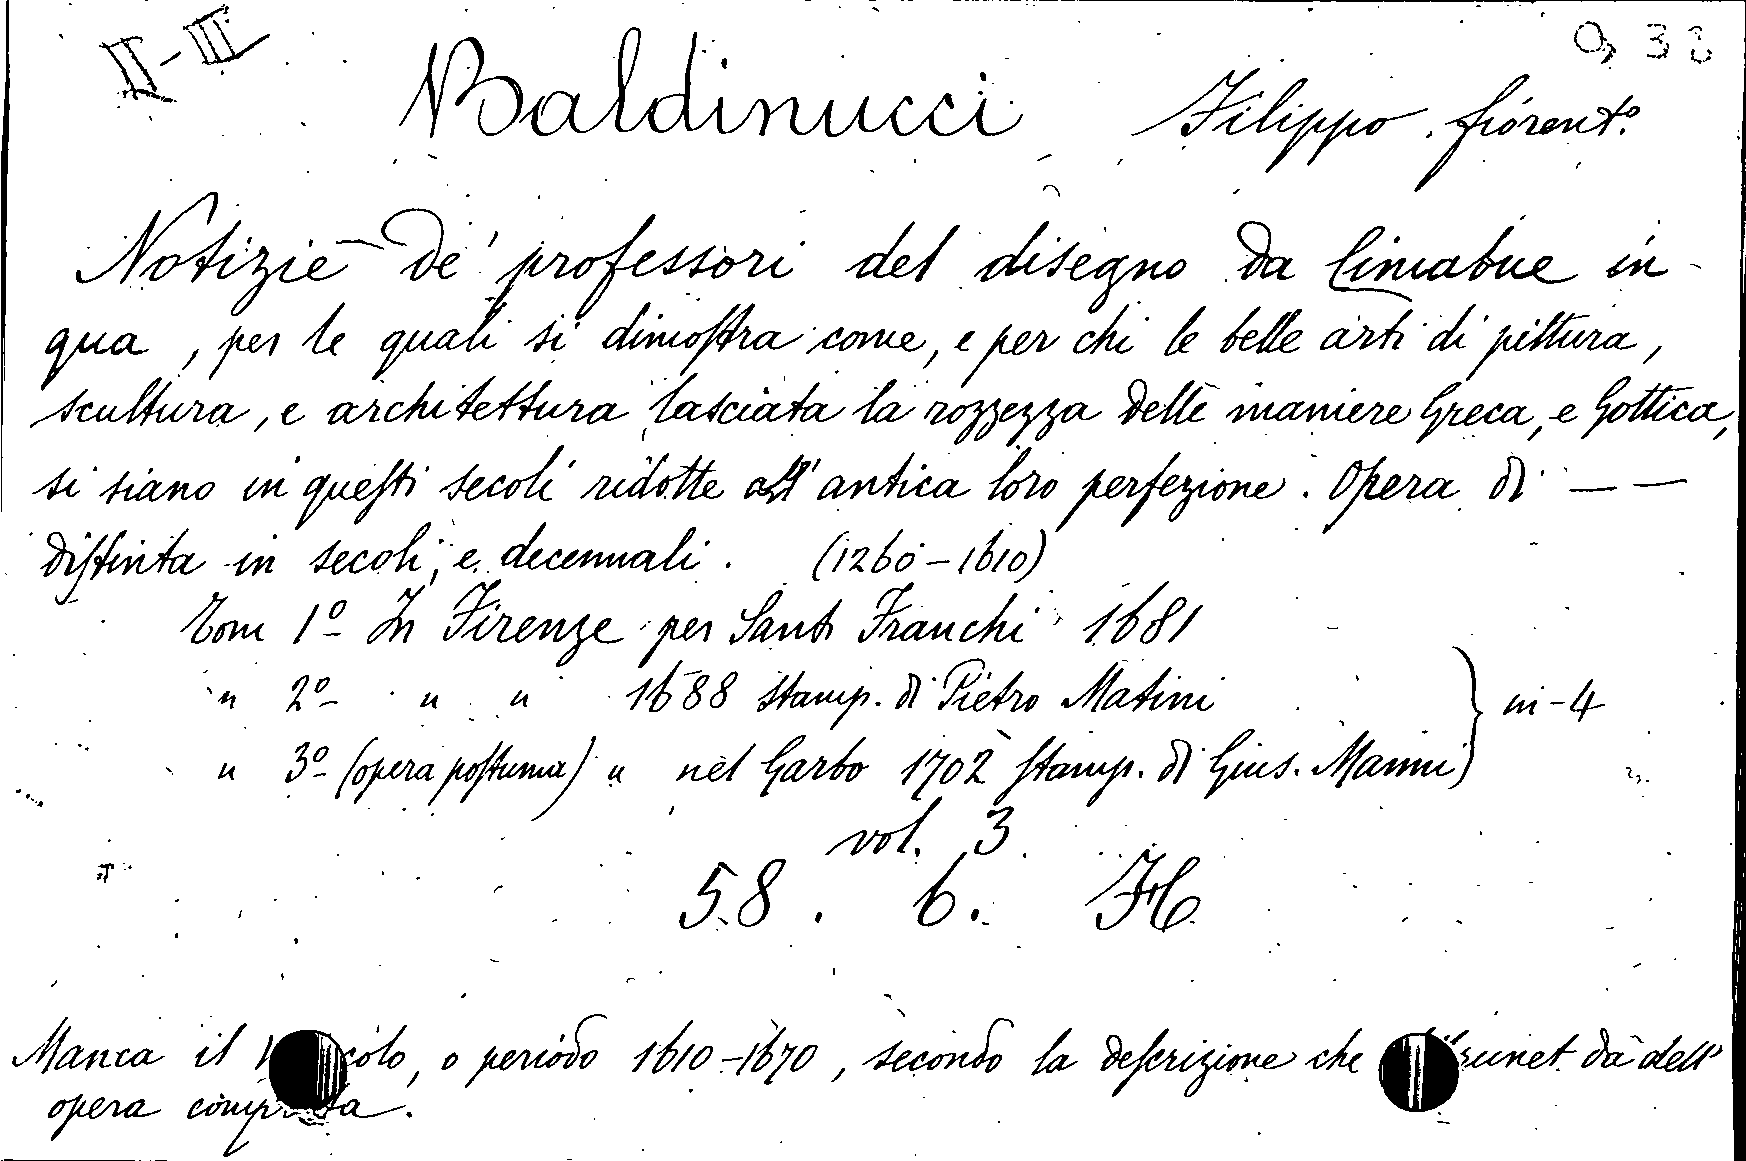 II-III
Baldinucci Filippo. fiorent.º
Notizie de' professori del disegno da Cimabue in
qua, per le quali si dimoſtra come, e per chi le belle arti di pittura,
scultura, e architettura lasciata la rozzezza delle maniere Greca, e Gottica,
si siano in queſti secoli ridotte all' antica loro perfezione. Opera di — —
diſtinta in secoli, e decennali. (1260-1610)
Tom 1º In Firenze per Santi Franchi 1681
" 2º " " 1688 stamp. di Pietro Matini
" 3º (opera poſtuma) " nel Garbo 1702 ſtamp. di Gius. Manni } in-4
vol. 3
58. 6. H
Manca il , o periodo 1610-1670, secondo la deſcrizione che dà dell'
opera .